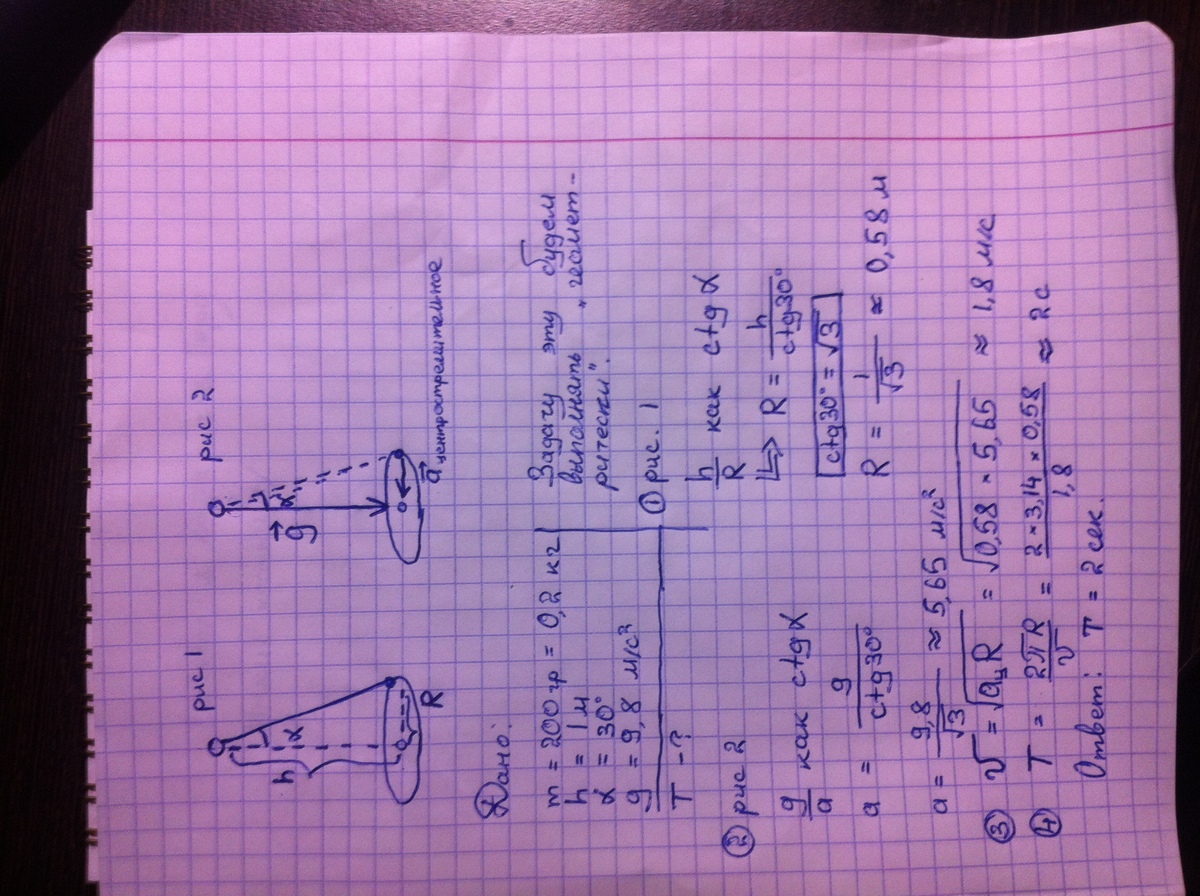 рис 1
h
α
R
рис 2
g
α
a центростремительное
Дано:
m = 200 гр = 0,2 кг
h = 1 м
α = 30°
g = 9,8 м/с²
T - ?
Задачу эту будем
выполнять „геомет-
ритески".
① рис. 1
h/R как ctg α
↳> R = h/ctg30°
ctg30° = √3
R = 1/√3 ≈ 0,58 м
② рис 2
g/a как ctg α
a = g/ctg30°
a = 9,8/√3 ≈ 5,65 м/с²
③ v = √aцR = √0,58 × 5,65 ≈ 1,8 м/с
④ T = 2πR/v = 2 × 3,14 × 0,58/1,8 ≈ 2 с
Ответ: T = 2 сек.